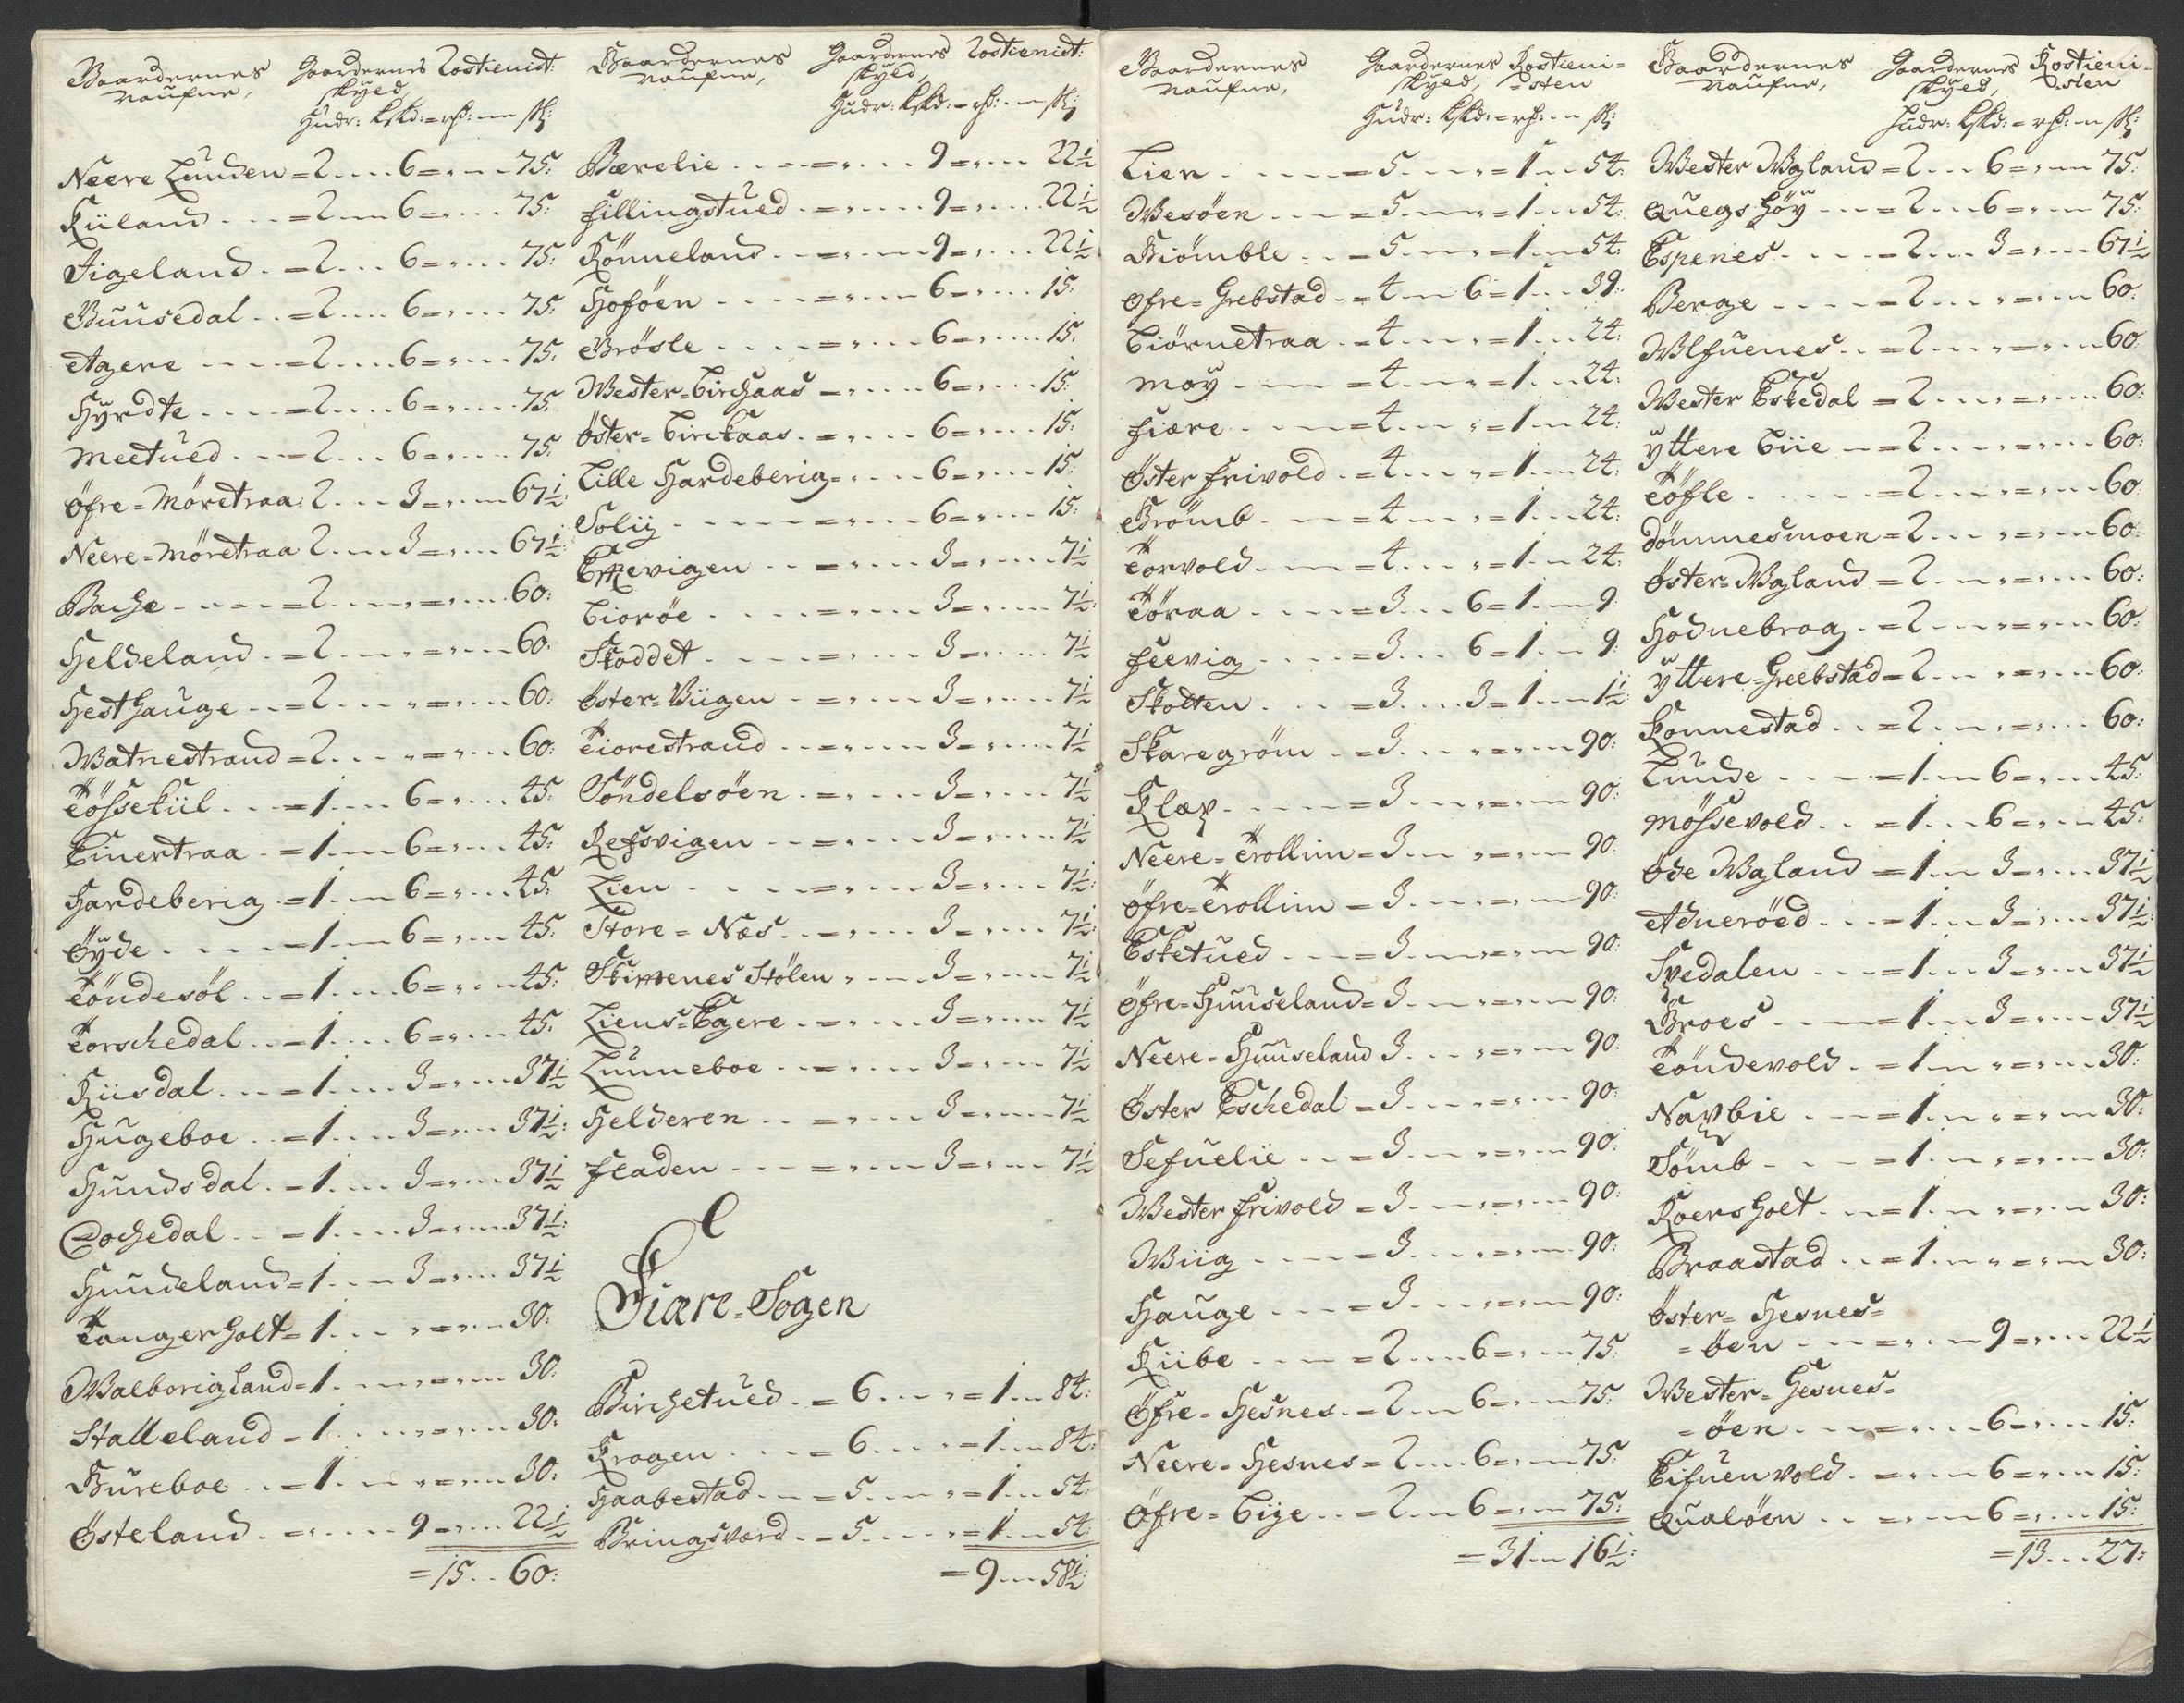 Gaardernes Gaardernes Rostienist:
naufne, skyld,
Hudr: kskd: = rd: -- sk:
Neere Lunden = 2 .... 6 = , -- 75:
Kuland .. -- = 2 -- 6 = , .... 75:
Tigeland . -- = 2 ... 6 = , ... 75:
Buusedal .. = 2 ... 6 = , .... 75:
Agere .... -- = 2 .... 6 = , ... 75:
Hyrdte .... = 2 .... 6 = , .... 75:
Meetued . .. = 2 ... 6 = , .... 75:
Øfre = Møretraa: 2 ... 3 = , -- 67½:
Neere = Møretraa 2 .... 3 = , .... 67½:
Bache - .... = 2 .... , = , .... 60:
Heldeland . = 2 .... , = , -- 60:
Hesthauge .. = 2 ... , = , -- 60:
Watnestrand = 2 ... , = , -- 60:
Tøssekiil . .. = 1 .... 6 = , ... 45:
Einertraa . = 1 .... 6 = , .... 45:
Hardeberig . = 1 ... 6 = , ... 45:
Øyde . .... = 1 .... 6 = , ... 45:
Tøndesøl .. = 1 .... 6 = , .. 45:
Torschedal .. = 1 .... 6 = , ... 45:
Riisdal . .. = 1 .... 3 = , -- 37½
Hugeboe .. = 1 .... 3 = , -- 37½:
Hundsdal . = 1 .... 3 = , -- 37½
Dochedal .. = 1 .... 3 = , -- 37½:
Hundeland = 1 .... 3 = , -- 37½
Tangerholt = 1 ... , = , -- 30:
Walborigland = 1 . -- , = , -- 30:
Stalleland = 1 . .. , = , -- 30:
Bureboe .. = 1 . .. , = , -- 30:
Østeland . = , .... 9 = , -- 22½
= 15 .. 60:
Gaardernes Gaardernes Rostienist:
naufne, skyld,
Hudr: kskd: = rd: -- sk:
Bærelie . .... = , ... 9 = , ... 22½
Fillingstued .. = , .... 9 = , .... 22½
Rønneland .. = , -- 9 = , .... 22½
Hoføen . .... = , -- 6 = , .... 15:
Brøsle . .... = , -- 6 = , .... 15:
Wester = Birchaas = , .... 6 = , .... 15:
Øster = Birckaas . = , ... 6 = , ... 15:
Lille Hardeberig = , ... 6 = , .... 15:
Soliig . .... = , .... 6 = , .... 15:
.. = , .... 3 = , .... 7½
.... = , .... 3 = , .... 7½:
Skoddet . .... = , .... 3 = , .... 7½
Øster = Viigen .. = , .... 3 = , .... 7½
Tiorestrand .. = , .... 3 = , .... 7½
Søndelsøen . = , .... 3 = , .... 7½
Refsvigen .. = , .... 3 = , .... 7½
Lien . .... = , .... 3 = , .... 7½:
Store = Næs . .. = , .... 3 = , .... 7½:
Stølen , .... 3 = , .... 7½
Liens = Egere .. = , .... 3 = , .... 7½
Lunneboe .. = , .... 3 = , .... 7½
Helderen .. = , .... 3 = , .... 7½
Fladen ... = , .... 3 = , ... 7½
Fiære = Sogen
Birchetued . = 6 ... , = 1 ... 84:
Krogen . ... = 6 ... , = 1 ... 84:
Haabestad .. = 5 .... , = 1 ... 54:
Bringsværd . = 5 .... , = 1 ... 54:
= 9 ... 58½:
Gaardernes Gaardernes Rostieni =
naufne, skyld, = sten
Hudr: kskd: = rd: -- sk:
Lien . .... = 5 .... , = 1 ... 54:
Wesøen .... = 5 .... , = 1 ... 54:
Biømble . .. = 5 .... , = 1 ... 54:
Øfre = Grebstad . = 4 ... 6 = 1 ... 39:
Biørnetraa .. = 4 ... , = 1 ... 24:
Moy . .. = 4 .... , = 1 ... 24:
Fiære . .. = 4 ... , = 1 ... 24:
Øster Frivold .. = 4 ... , = 1 ... 24:
Grømb . .. = 4 ... , = 1 ... 24:
Torvold . .. = 4 ... , = 1 ... 24:
Tøraa . .... = 3 ... 6 = 1 ... 9:
Feevig . ... = 3 ... 6 = 1 ... 9:
Skolten . .. = 3 ... 3 = 1 ... 1½:
Skaregrøm .. = 3 ... , = , ... 90:
Klæp . .... = 3 ... , = , ... 90:
Neere = Trollim = 3 ... , = , ... 90:
Øfre = Trollim = 3 ... , = , ... 90:
Esketued . ... = 3 ... , = , ... 90:
Øfre = Huuseland = 3 ... , = , ... 90:
Neere = Huuseland 3 ... , = , ... 90:
Øster Eschedal = 3 ... , = , ... 90:
Sefuelie .. = 3 ... , = , ... 90:
Wester Frivold = 3 ... , = , ... 90:
Wiig . .... = 3 ... , = , ... 90:
Hauge . ... = 3 ... , = , ... 90:
Riibe . ... = 2 ... 6 = , ... 75:
Øfre = Hesnes . = 2 ... 6 = , ... 75:
Neere = Hesnes = 2 ... 6 = , ... 75:
Øfre = Biie .. = 2 ... 6 = , ... 75:
= 31 ... 16½:
Gaardernes Gaardernes Rostieni =
naufne, skyld, = sten
Hudr: kskd: = rd: -- sk:
Wester Wgland = 2 ... 6 = , ... 75:
Quegshøy . .. = 2 ... 6 = , ... 75:
Espenes . ... = 2 ... 3 = , ... 67½
Berge . ... = 2 ... , = , ... 60:
Wlfuenes .. = 2 ... , = , ... 60:
Wester Eskedal = 2 ... , = , ... 60:
Yttere Biie .. = 2 ... , = , ... 60:
Tøfle . .... = 2 ... , = , ... 60:
Dømmesmoen = 2 ... , = , ... 60:
Øster = Wgland = 2 ... , = , ... 60:
Hodnebrog . = 2 ... , = , ... 60:
Yttere = Greebstad = 2 ... , = , ... 60:
Rønnestad .. = 2 ... , = , ... 60:
Lunde . .... = 1 ... 6 = , ... 45:
Møssevold . .. = 1 ... 6 = , ... 45:
Øde Wgland = 1 ... 3 = , ... 37½
Adnerøed . .. = 1 ... 3 = , ... 37½:
Svedalen . .. = 1 ... 3 = , ... 37½
Broes . .... = 1 ... 3 = , ... 37½
Tøndevold . = 1 ... , = , ... 30:
Navbie . .. = 1 ... , = , ... 30:
Sømb . .. = 1 ... , = , ... 30:
Roersholt . .. = 1 ... , = , ... 30:
Braastad .. = 1 ... , = , ... 30:
Øster = Hesnes =
= øen . .... = , ... 9 = , ... 22½
Wester = Hesnes =
= øen . .... = , ... 6 = , ... 15:
Bifuenvold . = , ... 6 = , ... 15:
Qualøen . .. = , ... 6 = , ... 15:
= 13 ... 27: